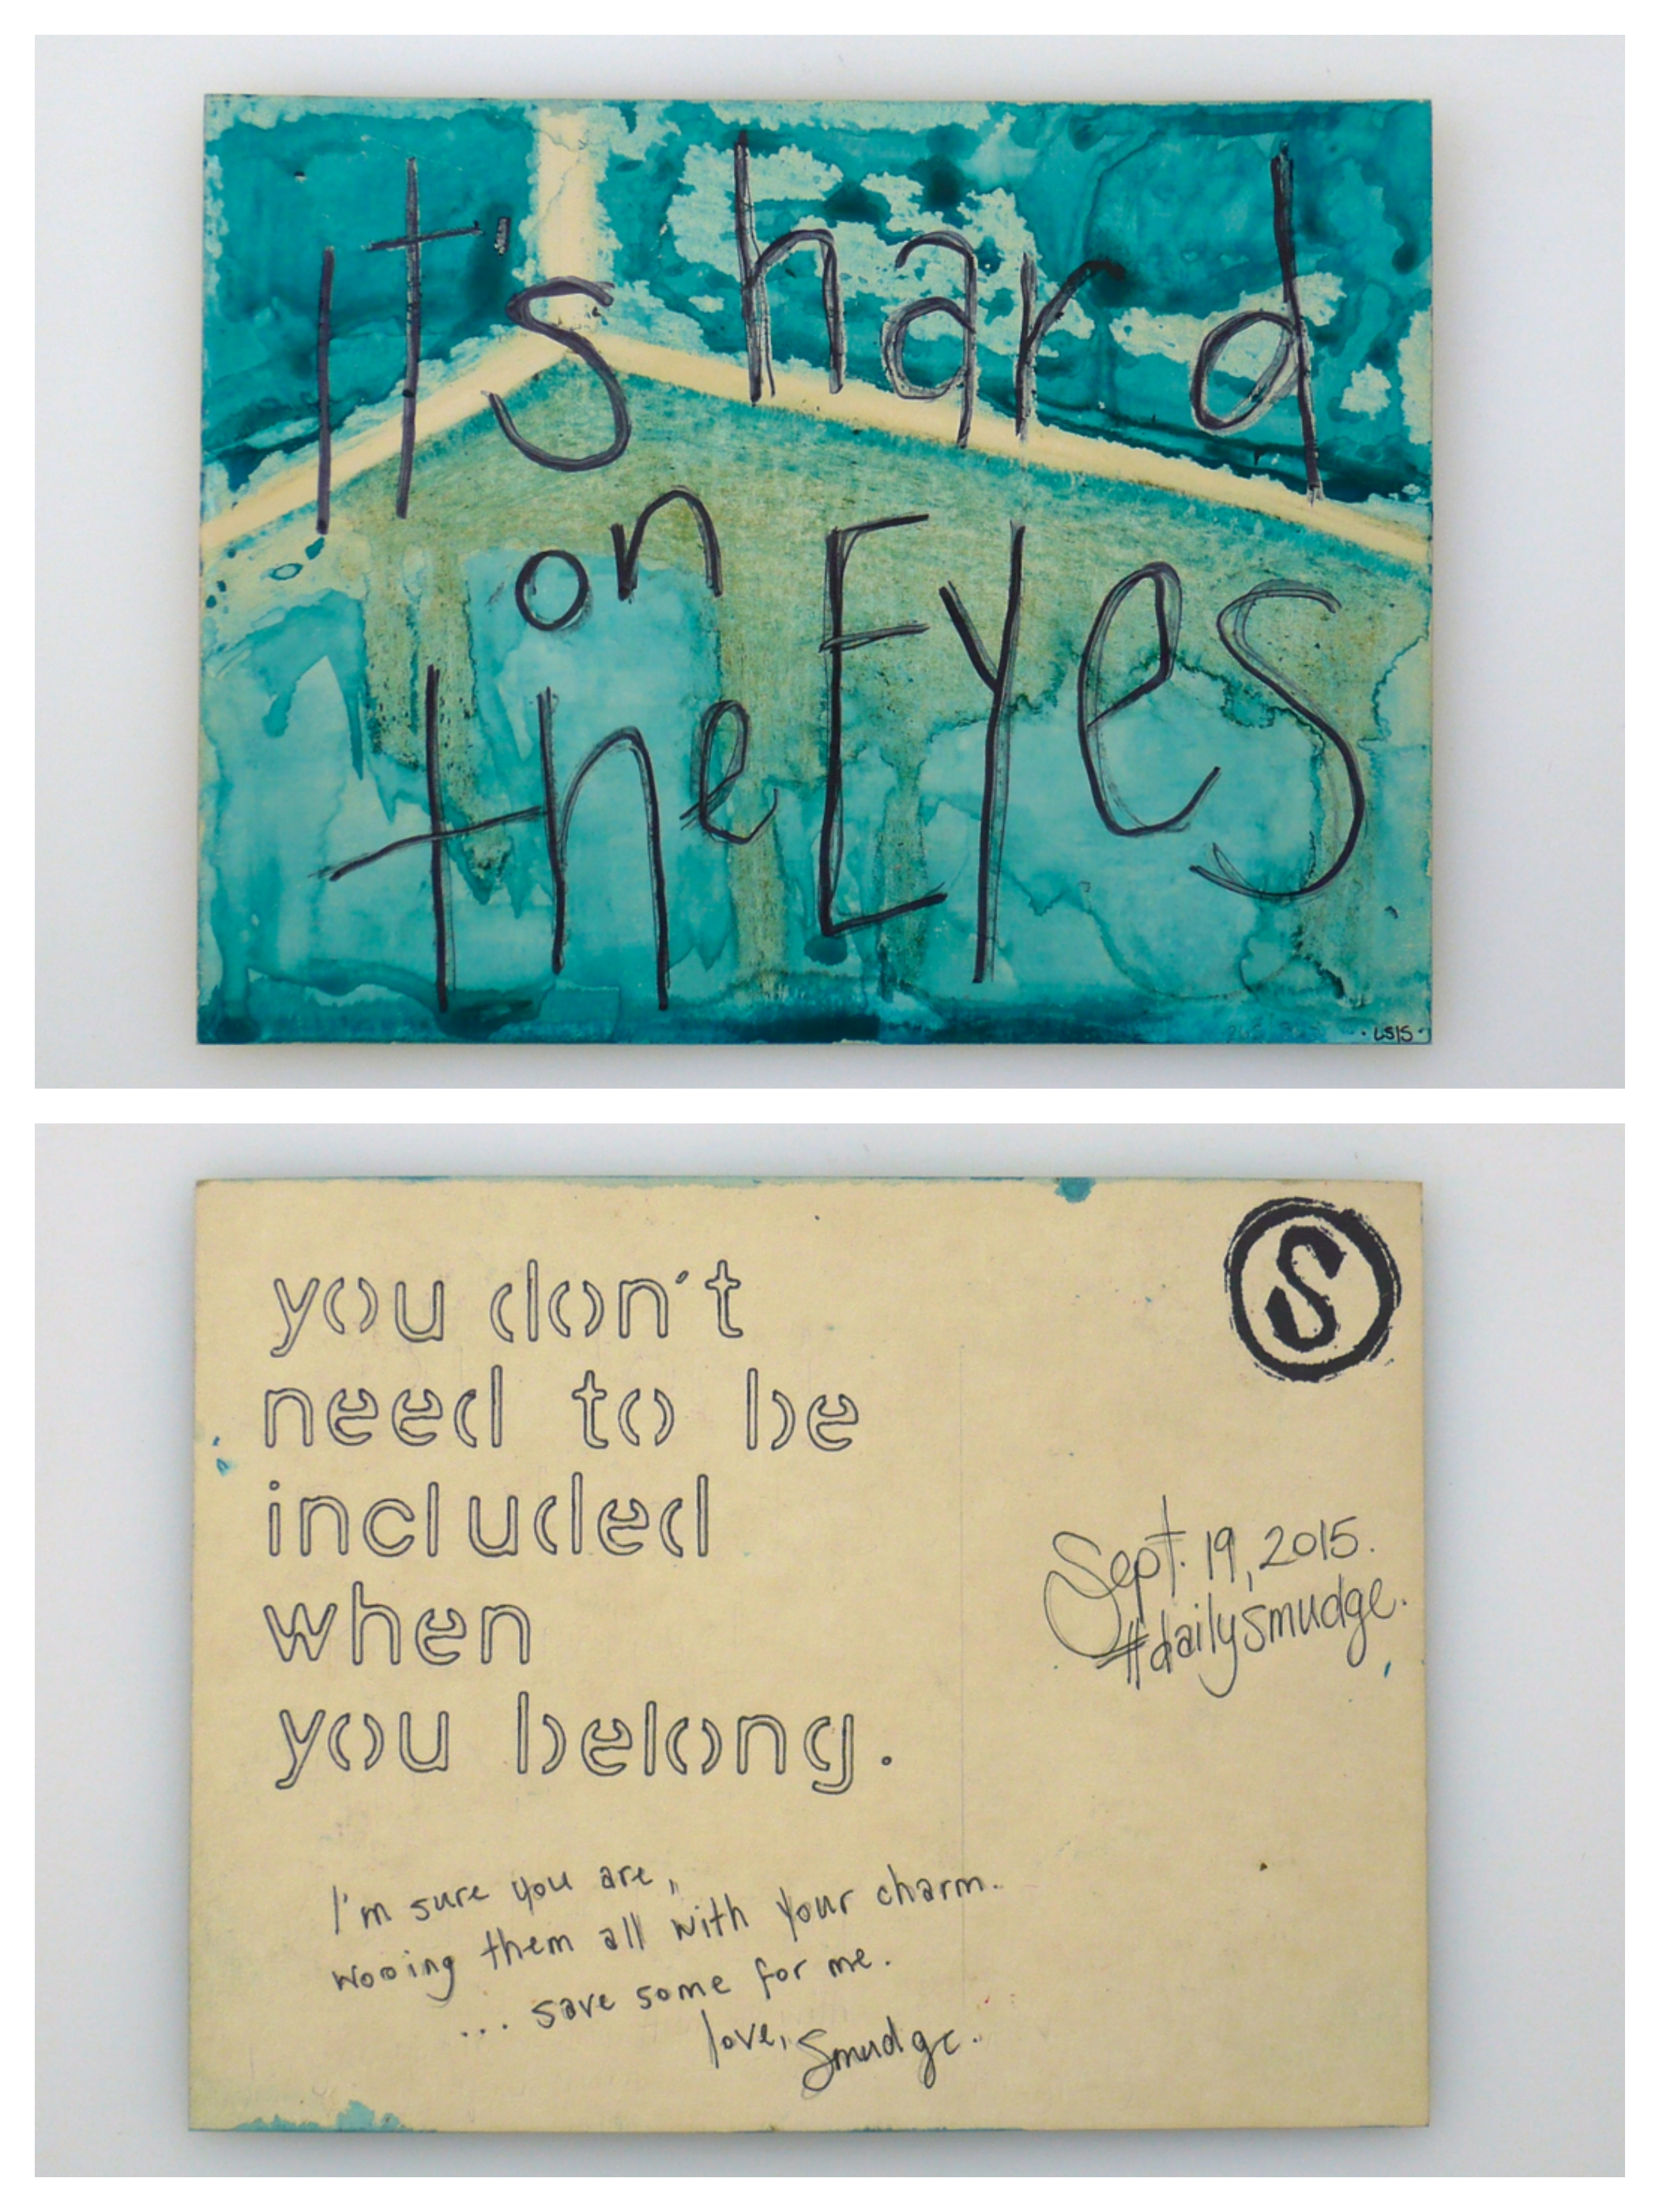 It's hard
on
the Eyes
·LS15·
S
you don't
need to be
included
when
you belong.
Sept. 19, 2015.
#dailysmudge.
I'm sure you are,
wooing them all with your charm.
... save some for me.
love, Smudge.